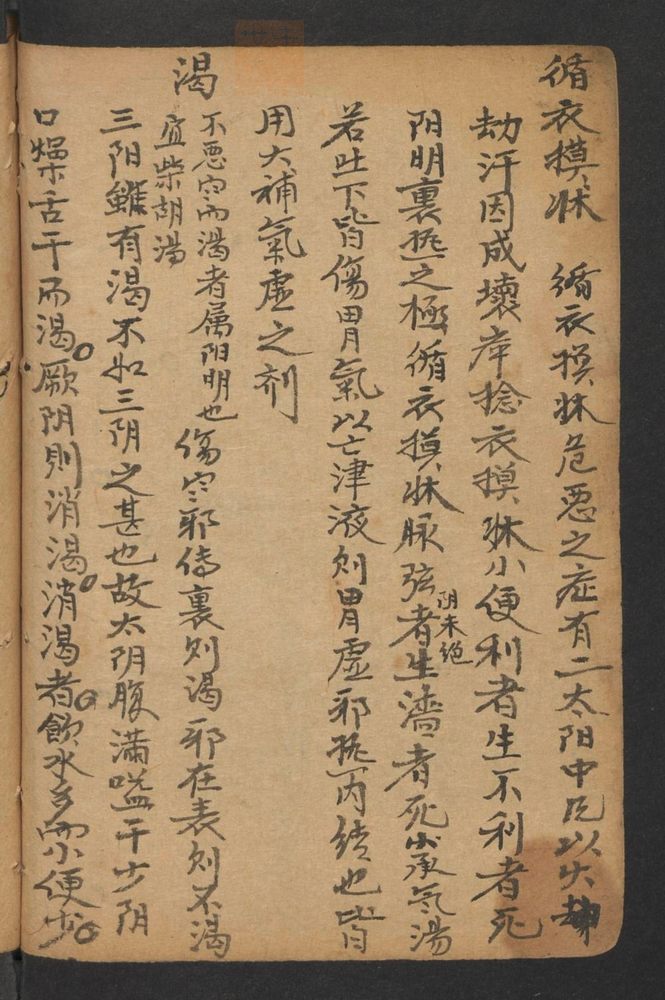 循衣摸牀 循衣摸牀危惡之症有二太阳中風以火劫
劫汗因成壞病捻衣摸牀小便利者生不利者死
阳明裏熱之極循衣摸牀脉弦者生濇者死小承气湯
阴未绝
若吐下皆傷胃氣以亡津液則胃虛邪熱内結也此皆
用大補氣虛之剂
渴 不惡寒而渴者属阳明也 傷寒邪传裏則渴邪在表則不渴
宜柴胡湯
三阳雖有渴不如三阴之甚也故太阴腹满嗌干少阴
口燥舌干而渴厥阴則消渴消渴者飲水多而小便少